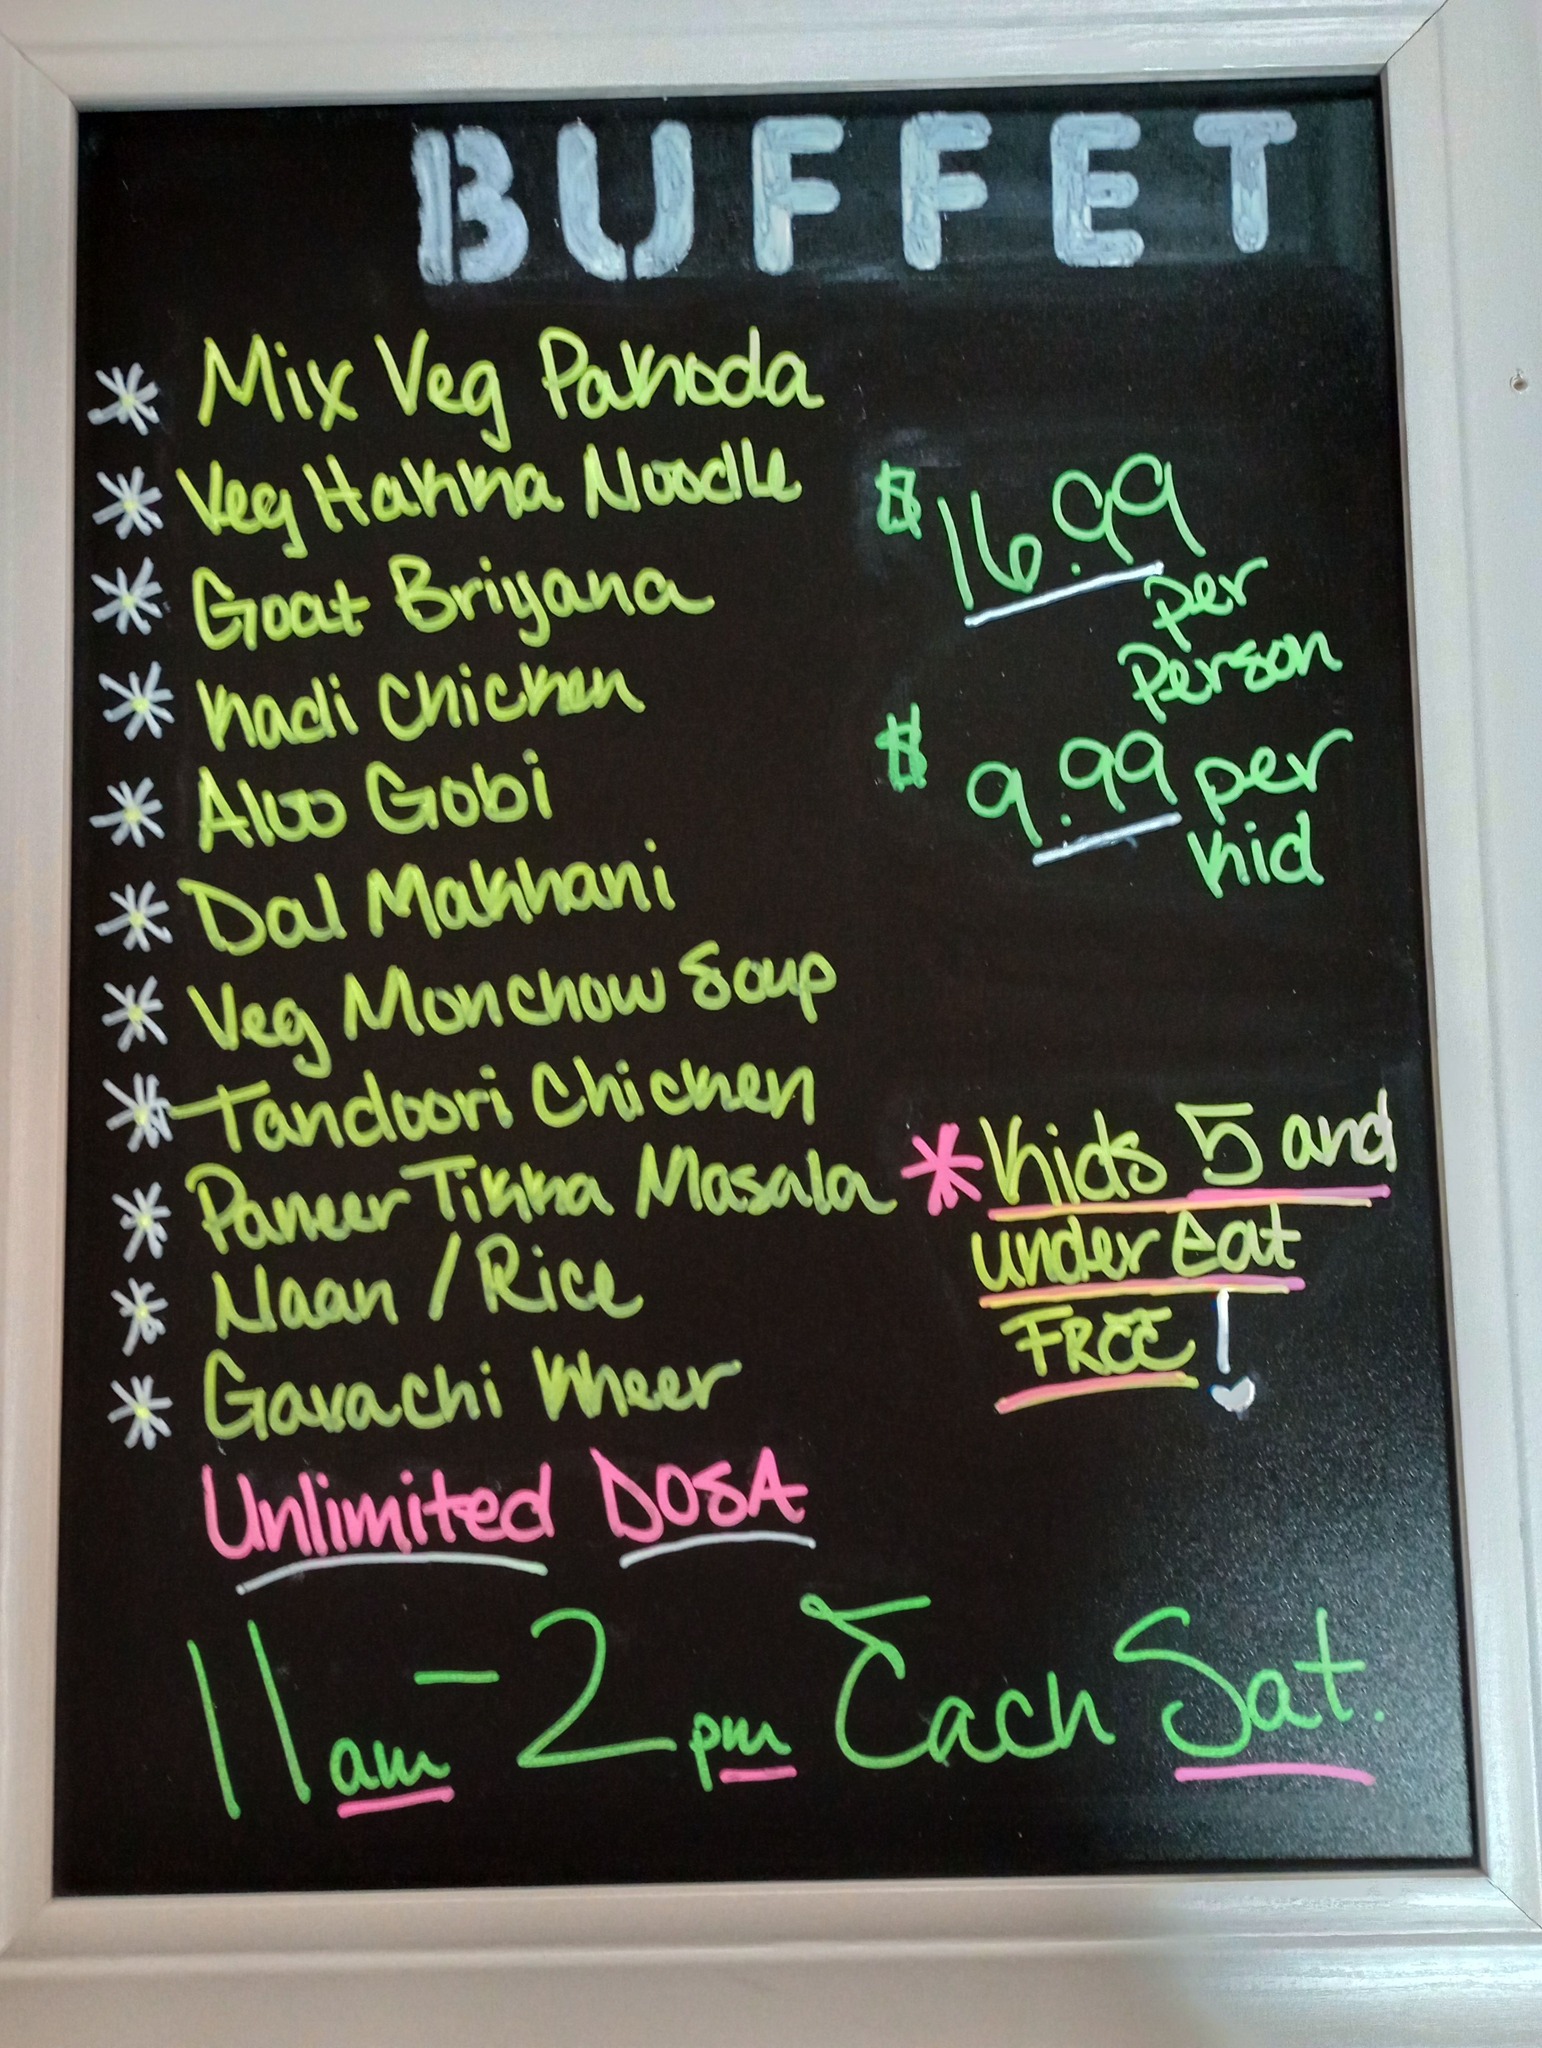 BUFFET
* Mix Veg Pakoda
* Veg Hakka Noodle
* Goat Briyana
* Kadi Chicken
* Aloo Gobi
* Dal Makhani
* Veg Monchow Soup
* Tandoori Chicken
* Paneer Tikka Masala
* Naan / Rice
* Gavachi Kheer
Unlimited DOSA
$16.99
per
person
$9.99 per
kid
* Kids 5 and
under Eat
FREE!
11am - 2pm Each Sat.